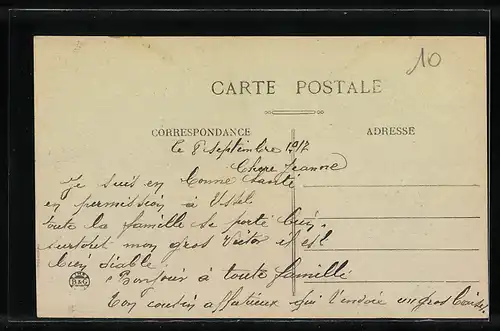 10
CARTE POSTALE
CORRESPONDANCE
ADRESSE
le 8 septembre 1917
Chere Jeanne
Je suis en bonne santé
en permission à Ussel
toute la famille se porte bien
surtout mon gros Victor il est
bien diable
Bonjour à toute famille
B&G
Ton cousin affectieux qui t'envoie un gros